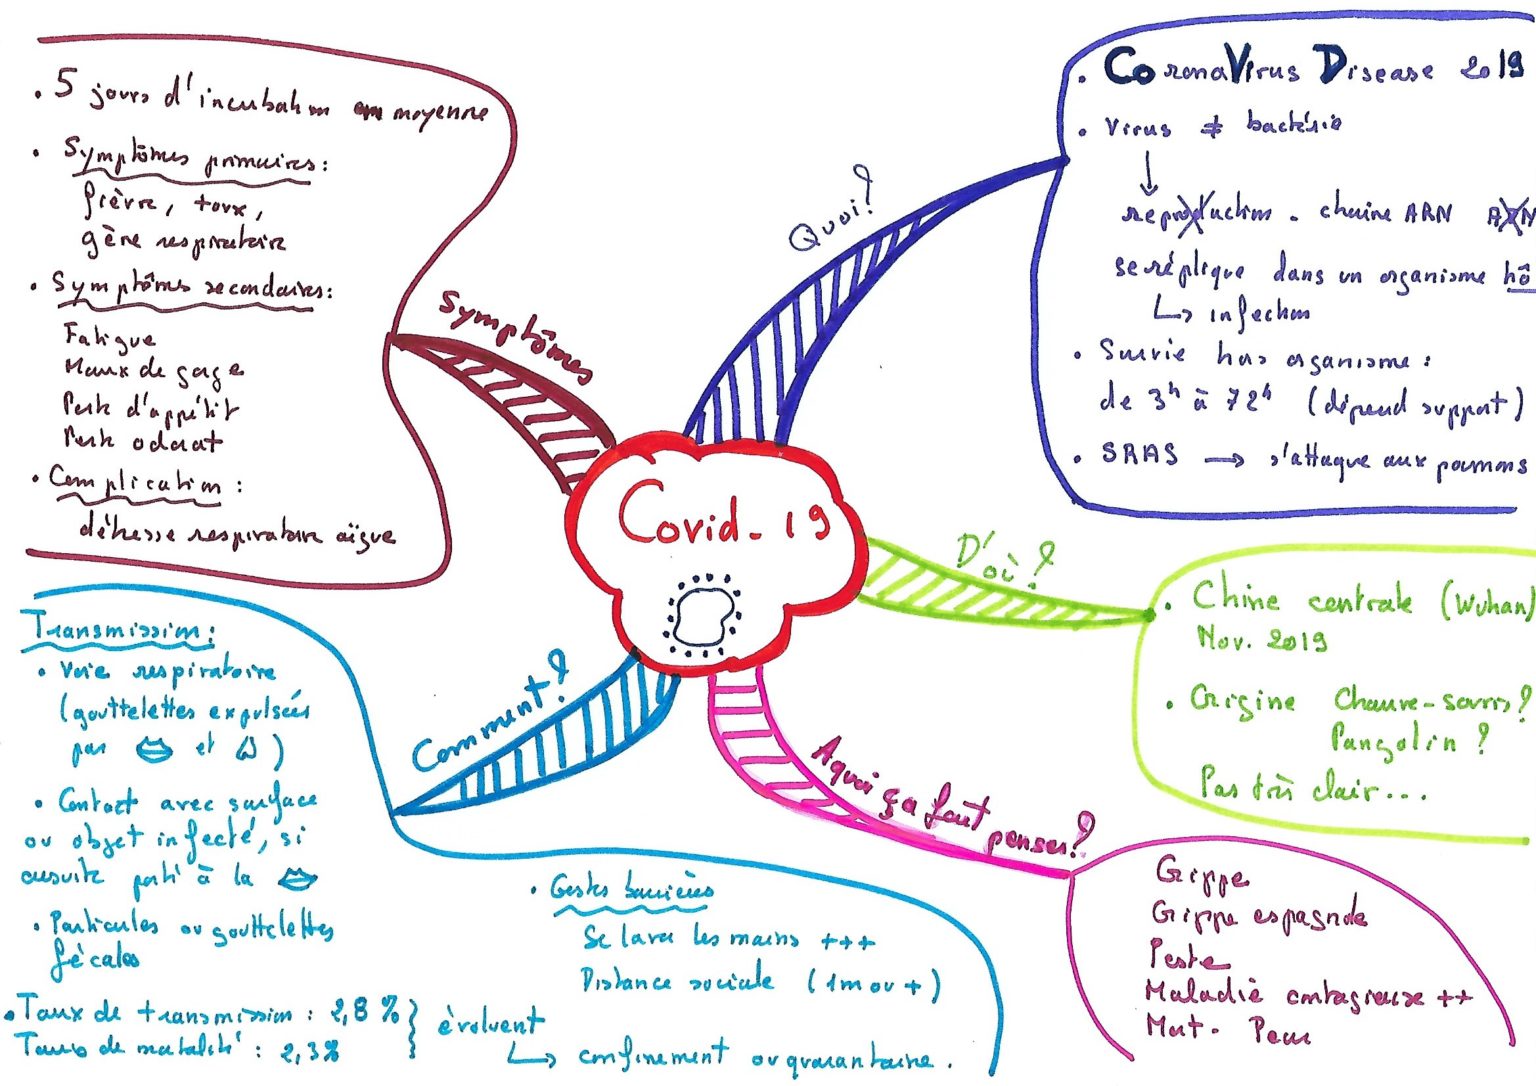 Covid-19
Symptômes
. 5 jours d'incubation en moyenne
. Symptômes primaires :
fièvre, toux,
gêne respiratoire
. Symptômes secondaires :
Fatigue
Maux de gorge
Perte d'appétit
Perte odorat
. Complication :
détresse respiratoire aïgue
Quoi ?
. CoronaVirus Disease 2019
. Virus ≠ bactérie
↓
reproduction - chaîne ARN
se réplique dans un organisme hô
↳ infection
. Survie hors organisme :
de 3h à 72h (dépend support)
. SRAS → s'attaque aux poumons
D'où ?
. Chine centrale (Wuhan)
Nov. 2019
. Origine Chauve-souris ?
Pangolin ?
Pas très clair...
A quoi ça fait
penser ?
Grippe
Grippe espagnole
Peste
Maladie contagieuse ++
Mort - Peur
Comment ?
Transmission :
. voie respiratoire
(gouttelettes expulsées
par et )
. Contact avec surface
ou objet infecté, si
ensuite porté à la
. Particules ou gouttelettes
fécales
. Taux de transmission : 2,8 %
Taux de mortalité : 2,3 %
} évoluent
↳ confinement ou quarantaine.
. Gestes barrières
Se laver les mains +++
Distance sociale (1m ou +)